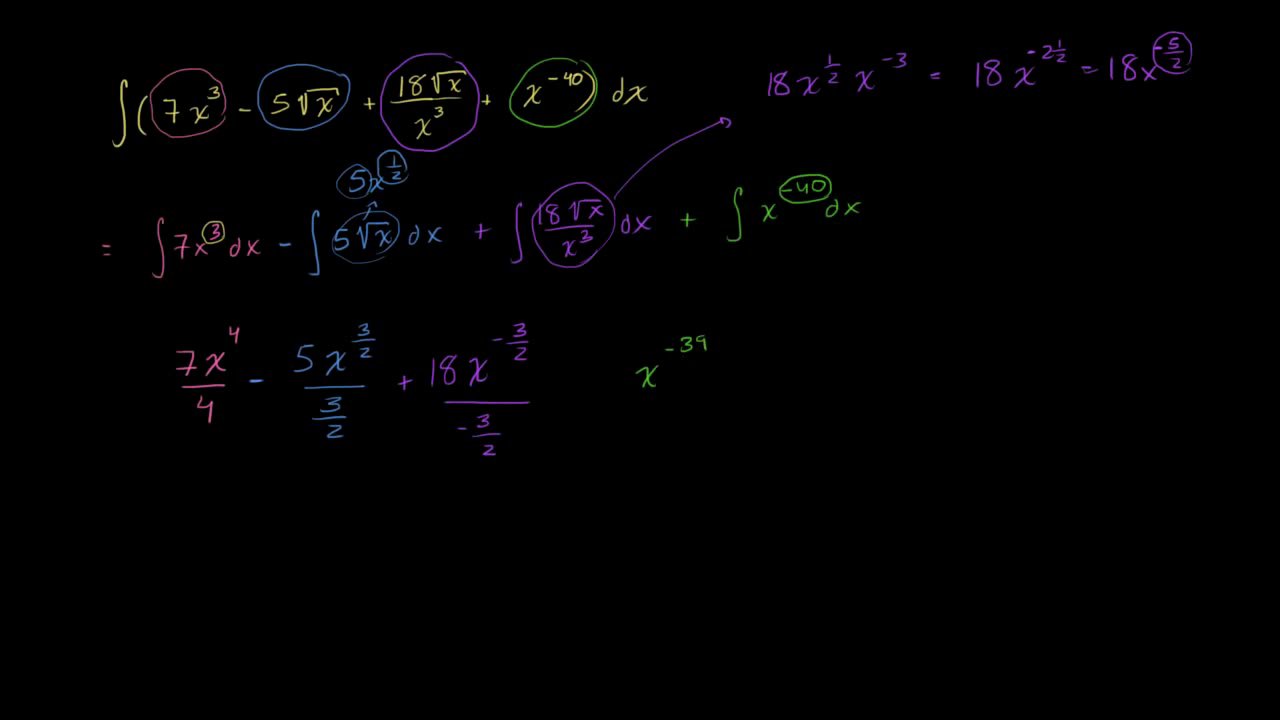 ∫(7x³ - 5√x + 18√x/x³ + x⁻⁴⁰) dx
18x^(1/2) x⁻³ = 18x^(-2 1/2) = 18x^(-5/2)
5x^(1/2)
= ∫7x³dx - ∫5√x dx + ∫18√x/x³ dx + ∫x⁻⁴⁰dx
7x⁴/4 - 5x^(3/2)/(3/2) + 18x^(-3/2)/(-3/2) x⁻³⁹